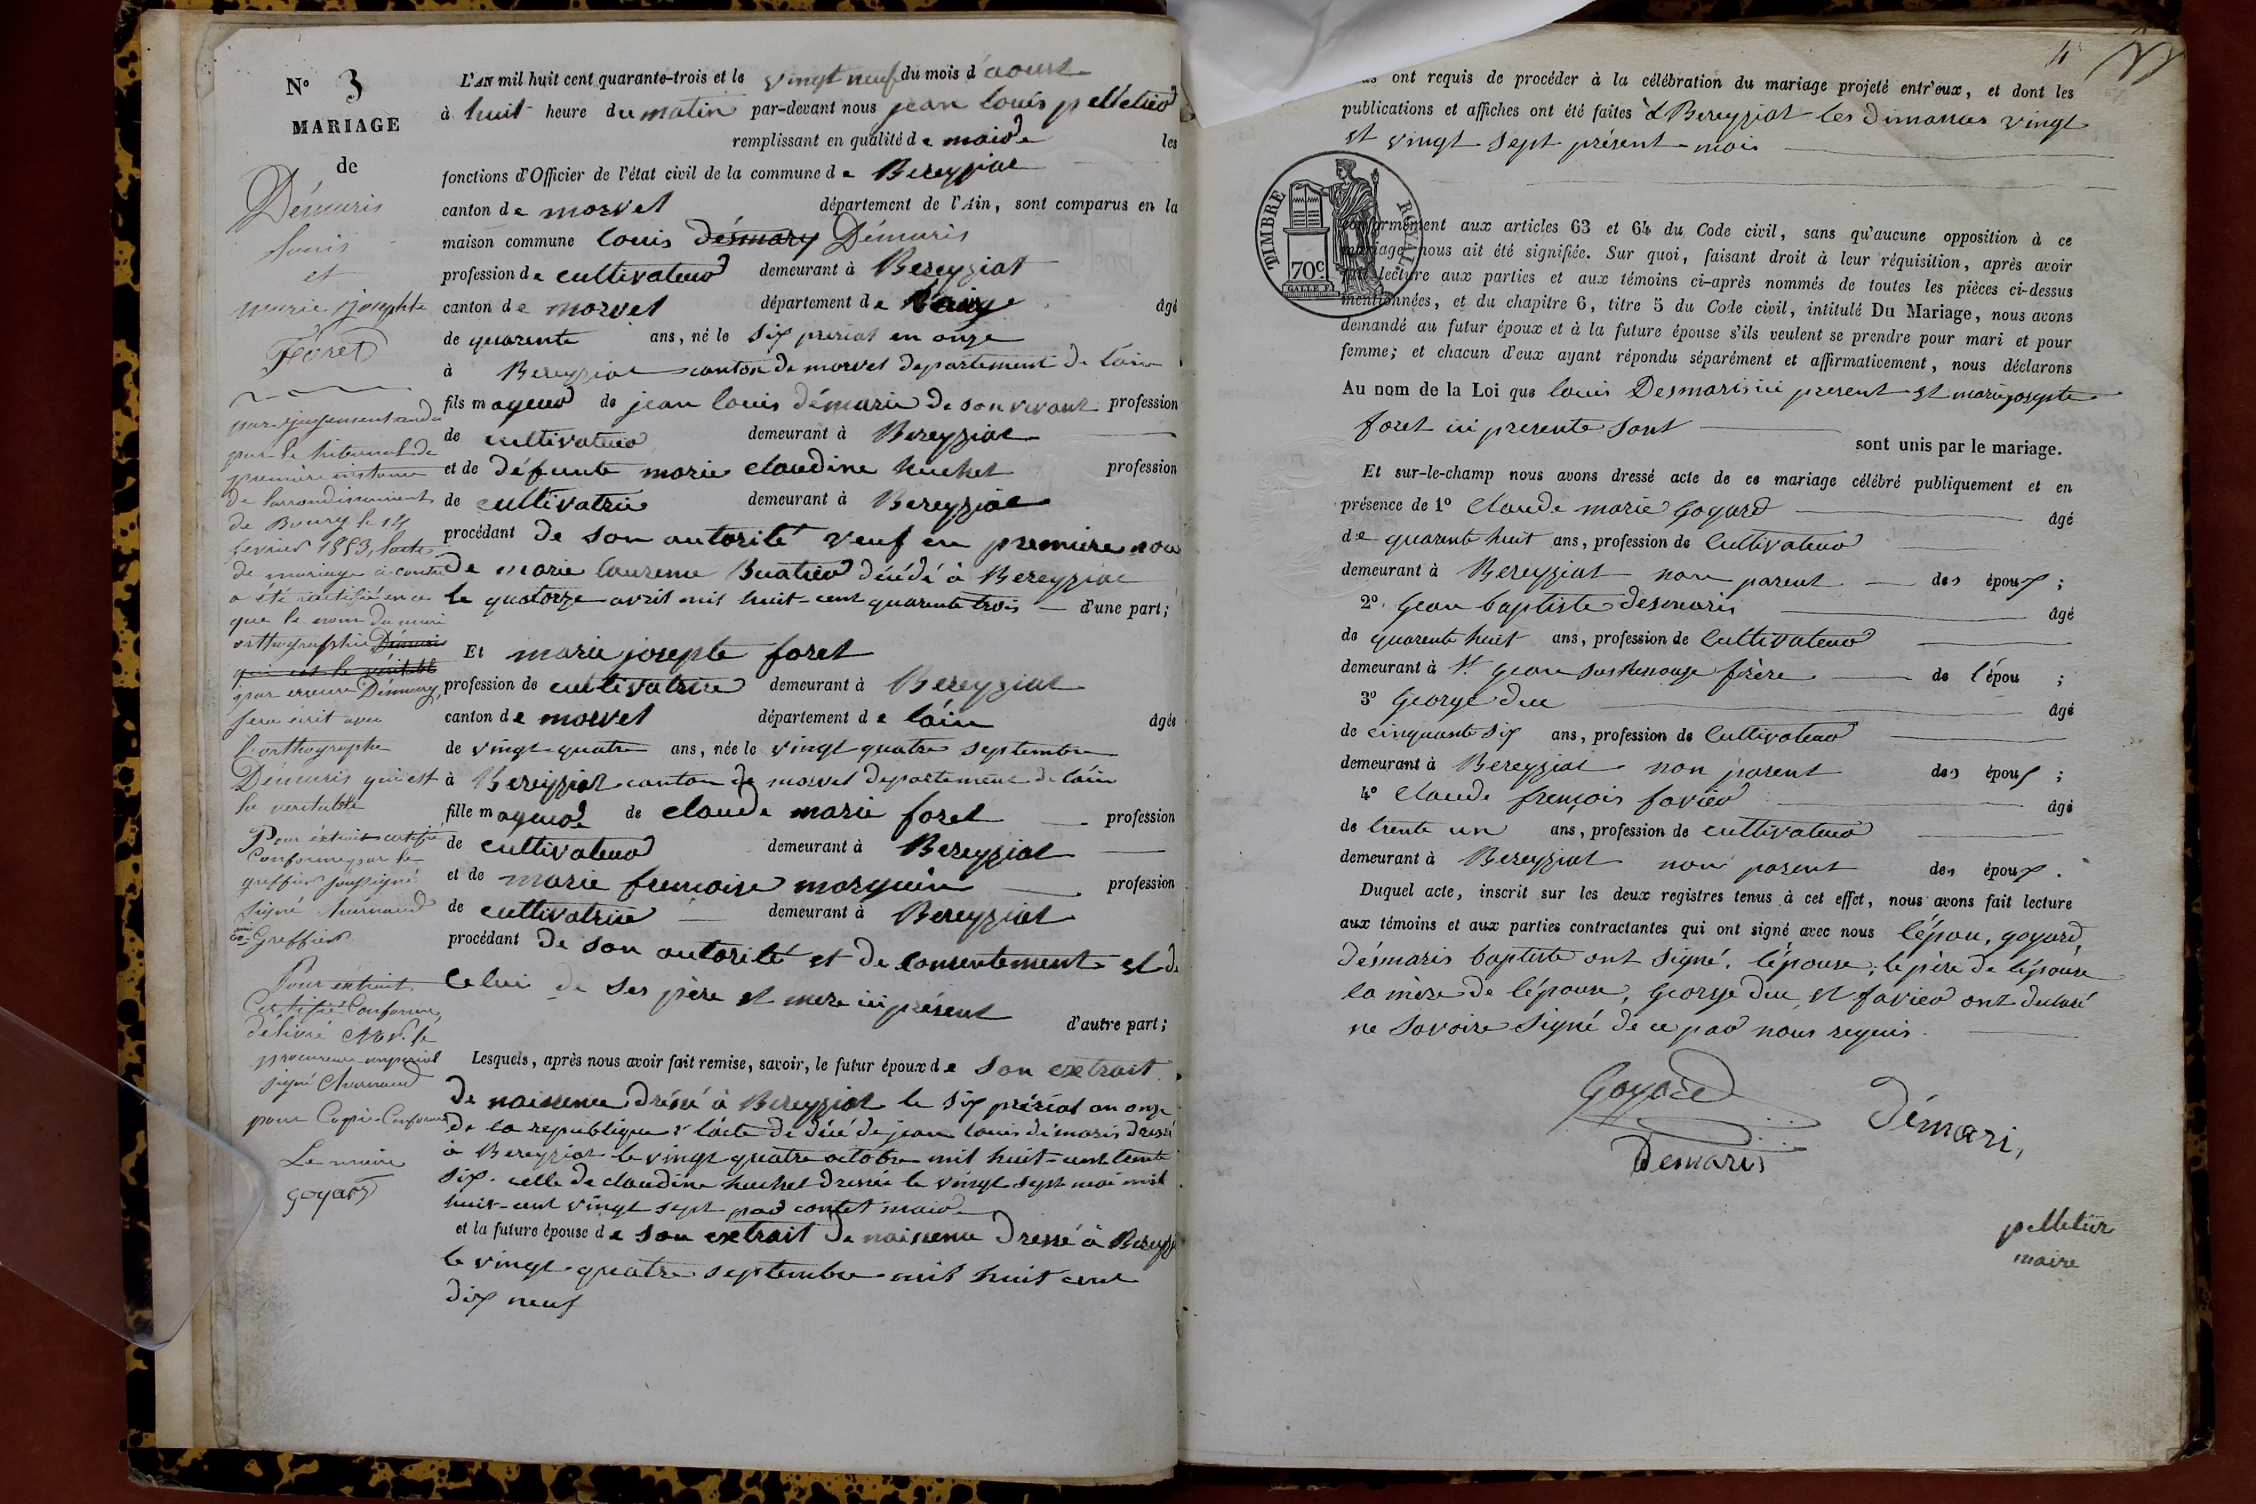 N° 3
MARIAGE
de
Démaris
louis
et
marie josephte
Foret
par jugement rendu
par le tribunal de
première instance
de l'arrondissement
de Bourg le 14
fevrier 1853, l'acte
de mariage ci-contre
a été rectifié en ce
que le nom du mari
orthographié Démaris
qui est le véritable
par erreur Démary,
sera écrit avec
l'orthographe
Démaris qui est
la veritable
Pour extrait certifié
Conforme par le
greffier soussigné
signé
Greffier
Pour extrait
Certifié Conforme
délivré à Mr. le
procureur impérial
signé
pour Copie Conforme
Le maire
goyard
L'AN mil huit cent quarante-trois et le vingt neuf du mois d'aoust
à huit heure du matin par-devant nous jean louis pelletier
remplissant en qualité de maire les
fonctions d'Officier de l'état civil de la commune de Bereyziat
canton de morvel département de l'Ain, sont comparus en la
maison commune louis désmary Démaris
profession de cultivateur demeurant à Bereyziat
canton de morvel département de l'ain âgé
de quarente ans, né le six prerial en onze
à Bereyziat canton de morvel departement de l'ain
fils mageur de jean louis démarie de son vivant profession
de cultivateur demeurant à Bereyziat
et de défunte marie claudine huchet profession
de cultivatrie demeurant à Bereyziat
procédant de son autorité veuf en premiere noce
de marie laurence Buatier décédé à Bereyziat
le quatorze avril mil huit-cent quarente trois d'une part;
Et marie josepte foret
profession de cultivatrice demeurant à Bereyziat
canton de morvel département de l'áin âgée
de vingt-quatre ans, née le vingt quatre septembre
à Bereyziat canton de morvel departement de l'áin
fille mageure de claude marie foret profession
de cultivateur demeurant à Bereyziat
et de marie francoise marguin profession
de cultivatrice demeurant à Bereyziat
procédant de son autorité et de consentement et de
celui de ses père et mere ici présent
d'autre part;
Lesquels, après nous avoir fait remise, savoir, le futur époux de son extrait
de naissence dréssé à Bereyziat le six prérial an onze
de la republique l'acte de décé de jean louis démaris dressé
à Bereyziat le vingt quatre octobre mil huit-cent trente
six. celle de claudine huchet dressée le vingt sept mai mil
huit-cent vingt sept par contet maire
et la future épouse de son extrait de naissence dressé à Bereyz
le vingt-quatre septembre mil huit cent
dix neuf
4
ont requis de procéder à la célébration du mariage projeté entr'eux, et dont les
publications et affiches ont été faites à Bereyziat les dimanches vingt
et vingt sept présent mois
TIMBRE ROYAL
70c
GALLE F.
conformément aux articles 63 et 64 du Code civil, sans qu'aucune opposition à ce
mariage nous ait été signifiée. Sur quoi, faisant droit à leur réquisition, après avoir
fait lecture aux parties et aux témoins ci-après nommés de toutes les pièces ci-dessus
mentionnées, et du chapitre 6, titre 5 du Code civil, intitulé Du Mariage, nous avons
demandé au futur époux et à la future épouse s'ils veulent se prendre pour mari et pour
femme; et chacun d'eux ayant répondu séparément et affirmativement, nous déclarons
Au nom de la Loi que louis Desmaris ici present et marie josepte
foret ici presente sont
sont unis par le mariage.
Et sur-le-champ nous avons dressé acte de ce mariage célébré publiquement et en
présence de 1° Claude marie goyard âgé
de quarente huit ans, profession de Cultivateur
demeurant à Bereyziat non parent des époux;
2° Gean baptiste desmaris âgé
de quarente huit ans, profession de Cultivateur
demeurant à St. gean sur Renouse frère de l'épou;
3° George duc âgé
de cinquante six ans, profession de Cultivateur
demeurant à Bereyziat non parent des époux;
4° Claude françois favier âgé
de trente un ans, profession de cultivateur
demeurant à Bereyziat non parent des époux.
Duquel acte, inscrit sur les deux registres tenus à cet effet, nous avons fait lecture
aux témoins et aux parties contractantes qui ont signé avec nous l'épou, goyard,
désmaris baptiste ont signé. l'épouse, le père de l'épouse
la mère de l'épouse, George duc, et favier ont declaré
ne savoire signé de ce par nous requis.
Goyard
Démari,
Demaris
pelletier
maire